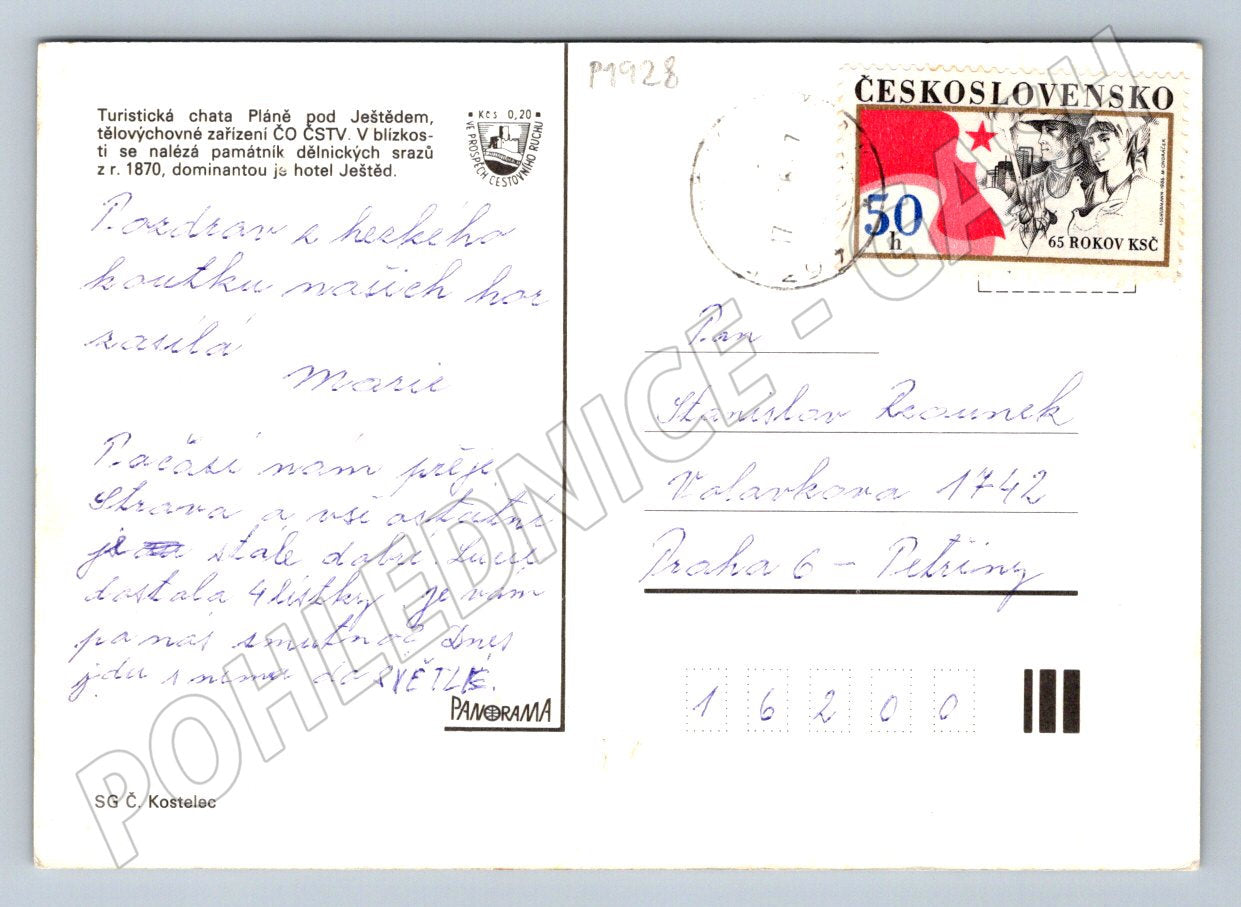 P1928
Turistická chata Pláně pod Ještědem,
tělovýchovné zařízení ČO ČSTV. V blízkos-
ti se nalézá památník dělnických srazů
z r. 1870, dominantou je hotel Ještěd.
Kčs 0,20
VE PROSPĚCH CESTOVNÍHO RUCHU
Pozdrav z hezkého
koutku našich hor
zasílá
Marie
Počasí nám přeje
Strava a vše ostatní
je stále dobré.
dostala 4 lístky, je vám
po nás smutno? Dnes
jdu s nimi do SVĚTLÉ.
PANORAMA
SG Č. Kostelec
ČESKOSLOVENSKO
50
h
65 ROKOV KSČ
Pan
Stanislav Rzounek
Volavkova 1742
Praha 6 - Petřiny
16200
POHLEDNICE - GACH